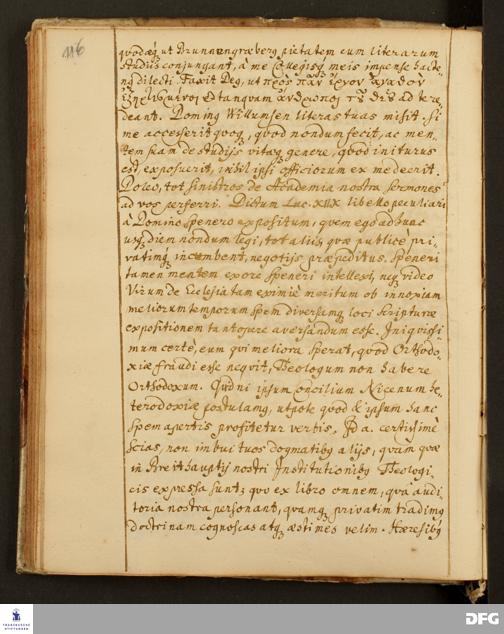 116
quodq; ut Brunnengræberg pietatem cum literarum
studiis conjungant, à me Collegisq; meis impense hacte-
nus dilecti. Faxit Deus, ut πρὸς πᾶν ἔργον ἀγαθὸν
tanquam ἄνθρωποι τοῦ θεοῦ ad te re-
deant. Dominus Willumsen literas tuas misit. Si
me accesserit quoq;, quod nondum fecit, ac men-
tem suam de studiis vitæq; genere, quod initurus
est, exposuerit, nihil ipsi officiorum ex me deerit.
Doleo, tot sinistros de Academia nostra sermones
ad vos perferri. Dictum Luc. XIIX libello peculiari
à Domino Spenero expositum, quem ego ad hunc
usq; diem nondum legi, tot aliis, quæ publicè pri-
vatimq; incumbent, negotiis præpeditus. Speneri
tamen mentem ex ore Speneri intellexi, neq; video
Virum de Ecclesia tam eximiè meritum ob innoxiam
meliorum temporum spem diversamq; loci Scripturæ
expositionem tantopere aversandum esse. Iniquissi-
mum certè, eum qui meliora sperat, quod Orthodo-
xiæ fraudi esse nequit, Theologum non habere
Orthodoxum. Quidni ipsum Concilium Nicenum he-
terodoxiæ postulamus, utpote quod & ipsum hanc
spem apertis profitetur verbis. Id a. certissimè
scias, non imbui tuos dogmatibus aliis, quam quæ
in Breithauptij nostri Institutionibus Theologi-
cis expressa sunt; quo ex libro omnem, qua audi-
toria nostra personant, quamq; privatim tradimus
doctrinam cognoscas atq; æstimes velim. Hæresibus
TRANCKESCHE STIFTUNGEN
DFG